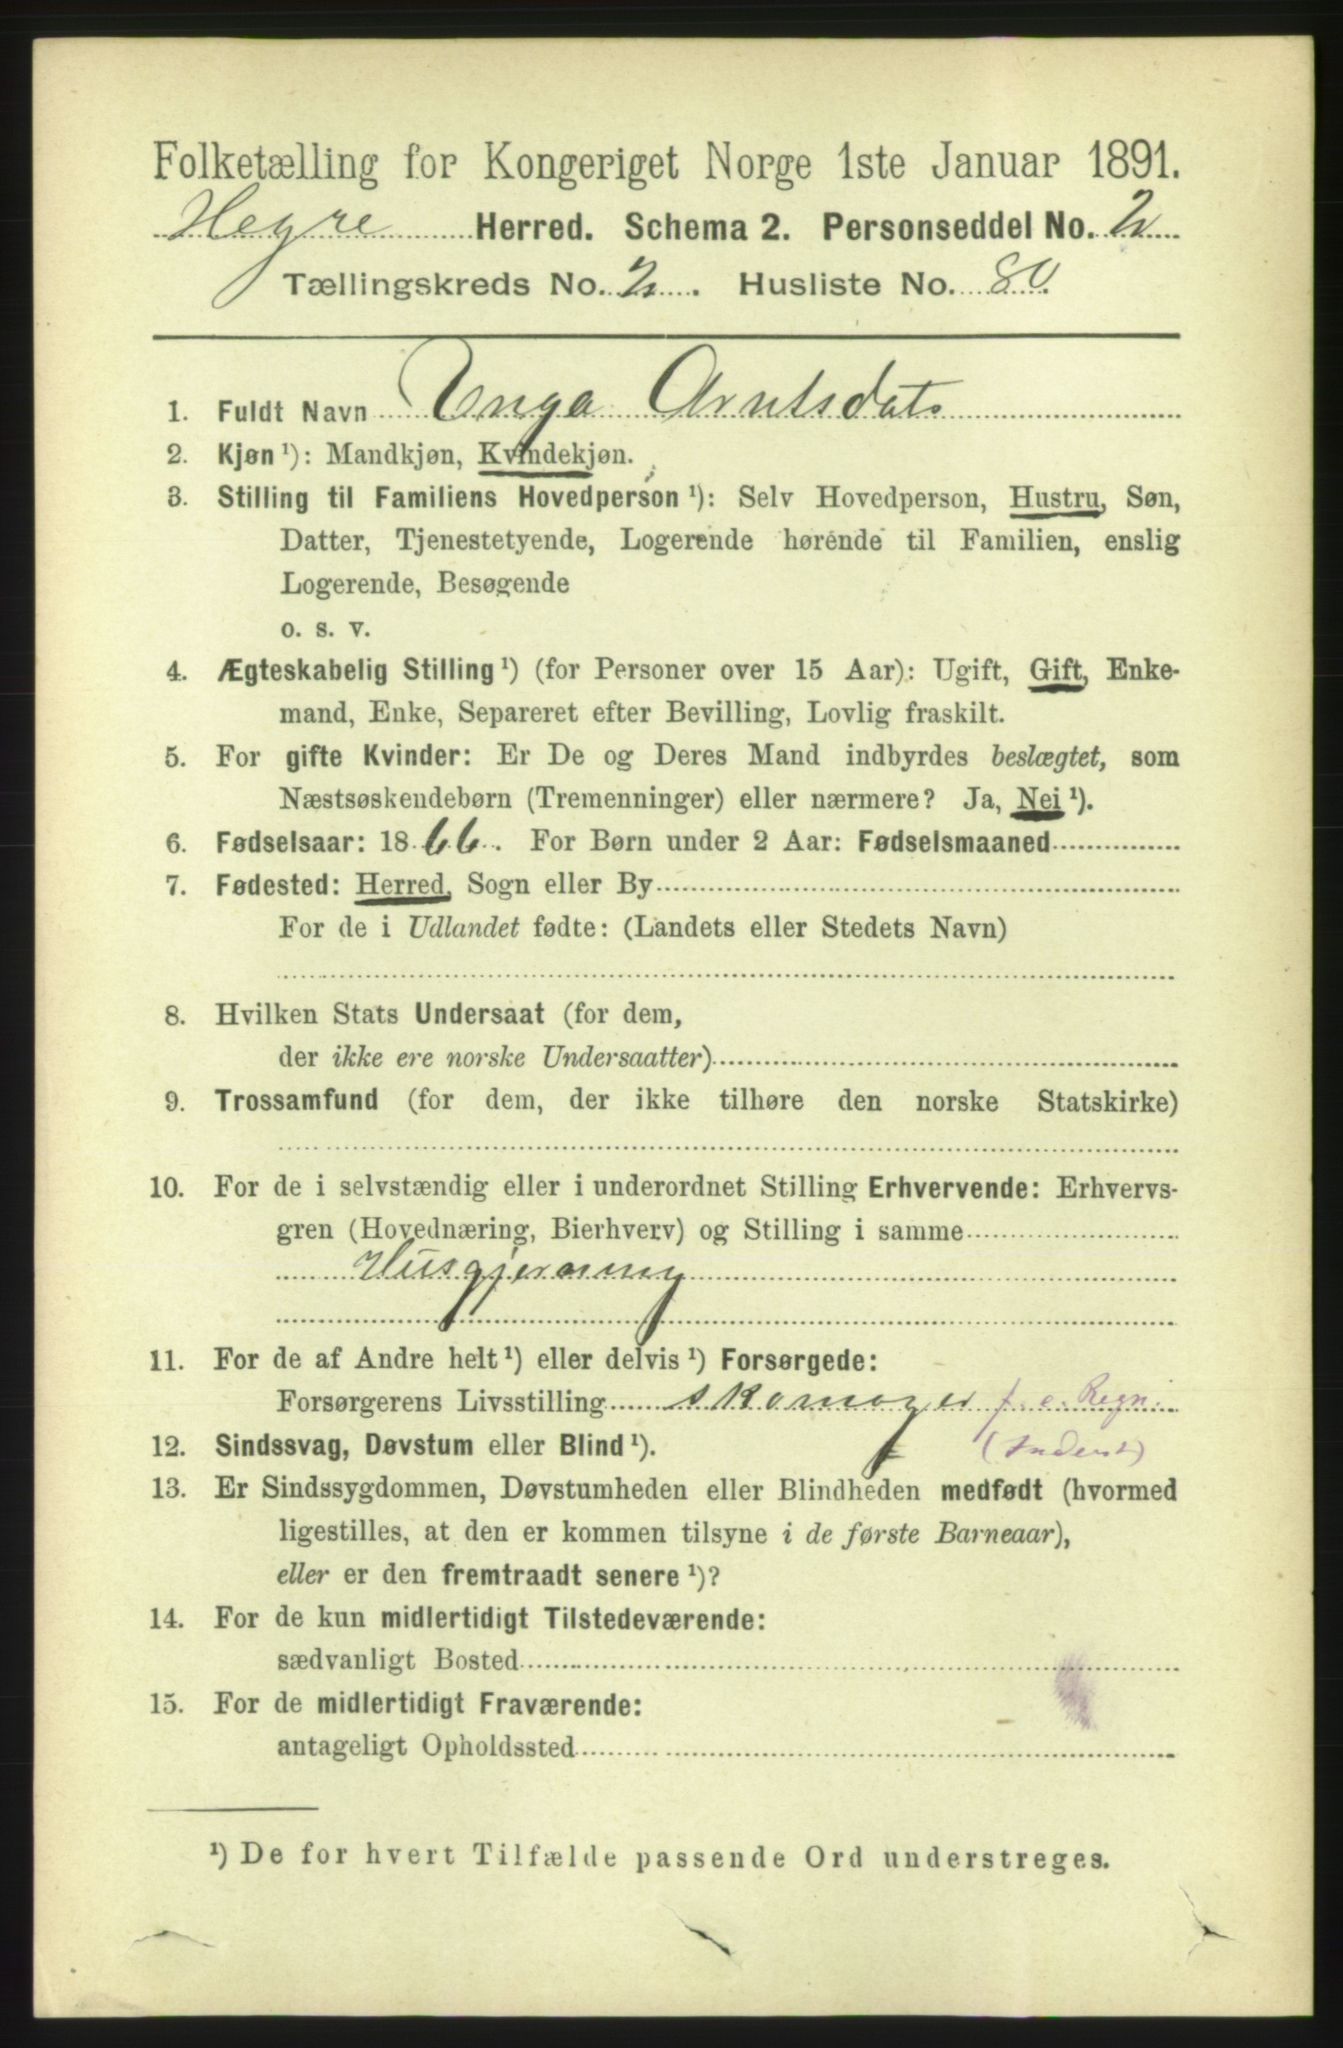 Folketælling for Kongeriget Norge 1ste Januar 1891.
Hegre Herred. Schema 2. Personseddel No. 2
Tællingskreds No. 2. Husliste No. 80
1. Fuldt Navn Inga Arntsdats
2. Kjøn ¹): Mandkjøn, Kvindekjøn.
3. Stilling til Familiens Hovedperson ¹): Selv Hovedperson, Hustru, Søn,
Datter, Tjenestetyende, Logerende hørende til Familien, enslig
Logerende, Besøgende
o. s. v.
4. Ægteskabelig Stilling ¹) (for Personer over 15 Aar): Ugift, Gift, Enke-
mand, Enke, Separeret efter Bevilling, Lovlig fraskilt.
5. For gifte Kvinder: Er De og Deres Mand indbyrdes beslægtet, som
Næstsøskendebørn (Tremenninger) eller nærmere? Ja, Nei ¹).
6. Fødselsaar: 1866. For Børn under 2 Aar: Fødselsmaaned
7. Fødested: Herred, Sogn eller By
For de i Udlandet fødte: (Landets eller Stedets Navn)
8. Hvilken Stats Undersaat (for dem,
der ikke ere norske Undersaatter)
9. Trossamfund (for dem, der ikke tilhøre den norske Statskirke)
10. For de i selvstændig eller i underordnet Stilling Erhvervende: Erhvervs-
gren (Hovednæring, Bierhverv) og Stilling i samme
Husgjerning
11. For de af Andre helt ¹) eller delvis ¹) Forsørgede:
Forsørgerens Livsstilling skomager f. e. Regn.
(Inderst)
12. Sindssvag, Døvstum eller Blind ¹).
13. Er Sindssygdommen, Døvstumheden eller Blindheden medfødt (hvormed
ligestilles, at den er kommen tilsyne i de første Barneaar),
eller er den fremtraadt senere ¹)?
14. For de kun midlertidigt Tilstedeværende:
sædvanligt Bosted
15. For de midlertidigt Fraværende:
antageligt Opholdssted
¹) De for hvert Tilfælde passende Ord understreges.